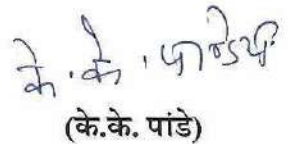 के. के. पाण्डेय
(के.के. पांडे)